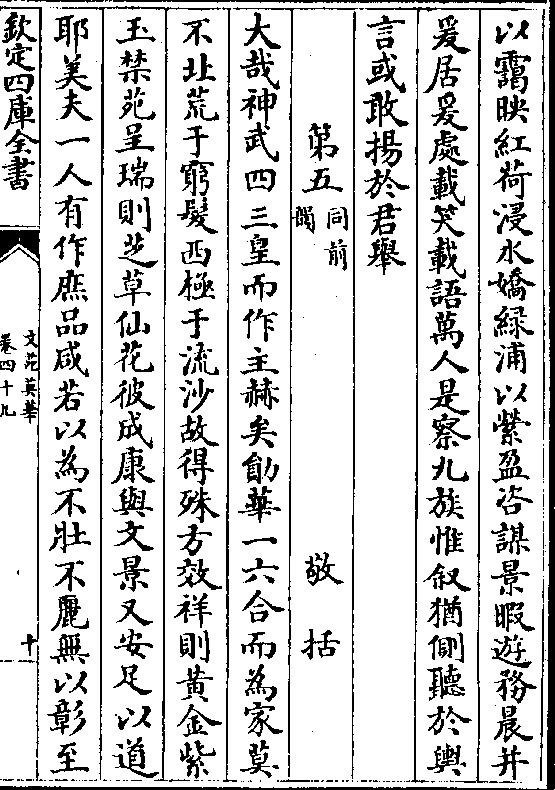 以靄映紅荷浸水嬌綠浦以縈盈咨謀景暇遊務晨并
爰居爰處載笑載語萬人是察九族惟叙猶側聽於輿
言或敢揚於君舉
第五同前韻 敬括
大哉神武四三皇而作主赫矣勛華一六合而為家莫
不北荒于窮髮西極于流沙故得殊方效祥則黃金紫
玉禁苑呈瑞則芝草仙花彼成康與文景又安足以道
耶美夫一人有作庶品咸若以為不壯不麗無以彰至
欽定四庫全書
文苑英華
卷四十九
十